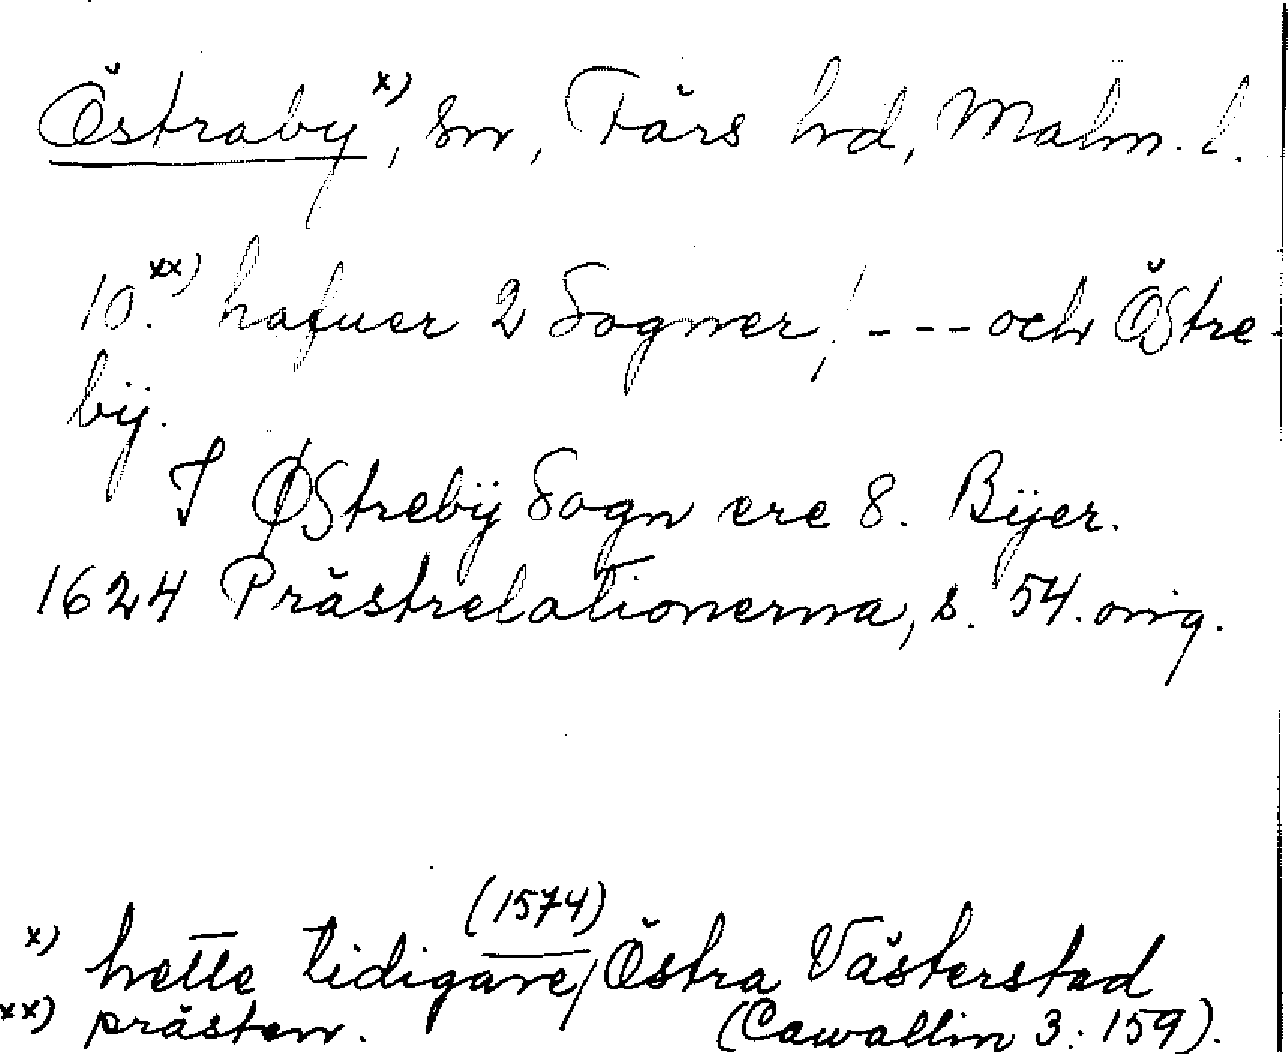 Östraby x), sn, Färs hd, Malm. l.
10. xx) hafuer 2 Sogner / --- och Östre-
bÿ.
I Østrebÿ Sogn ere 8. Bÿer.
1624 Prästrelationerna, s. 54. orig.
(1574)
x) hette tidigare / Östra Västerstad
xx) prästen. (Cawallin 3: 159).